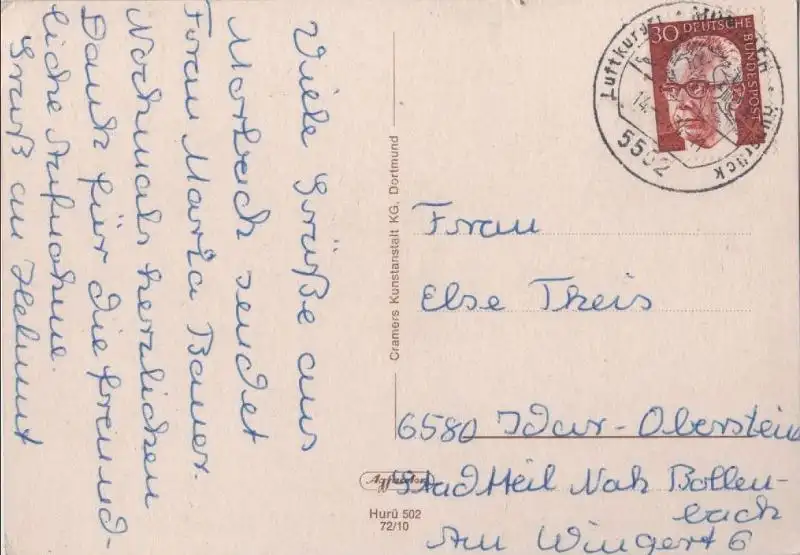 Viele Grüße aus
Morbach sendet
Frau Maria Bauer.
Nochmals herzlichen
Dank für die freund-
liche Aufnahme.
Gruß an Helmut
Cramers Kunstanstalt KG, Dortmund
30 DEUTSCHE BUNDESPOST
Luftkurort
14.
5552
Frau
Else Theis
6580 Idar-Oberstein
Stadtteil Nah Bollen-
bach
Am Wingert 6
Agfacolor
Hurü 502
72/10